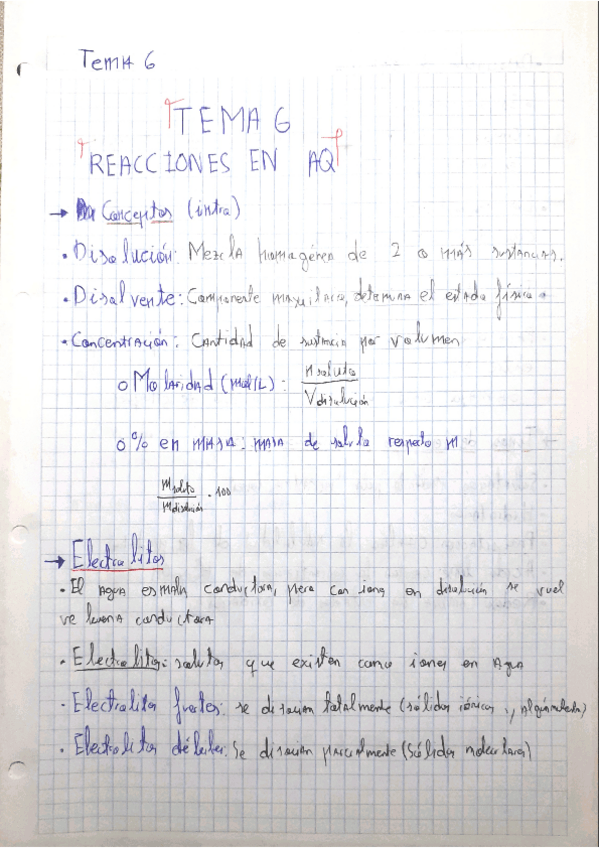 Tema 6
TEMA 6
REACCIONES EN AQ
→ Conceptos (intra)
• Disolución: Mezcla homogénea de 2 o más sustancias.
• Disolvente: Componente mayoritario, determina el estado físico
• Concentración: Cantidad de sustancia por volumen
o Molaridad (mol/L): n soluto
V disolución
o % en masa: masa de soluto respecto m
m soluto · 100
m disolución
→ Electrolitos
• El agua es mala conductora, pero con iones en disolución se vuel
ve buena conductora
• Electrolitos: solutos que existen como iones en agua
• Electrolitos fuertes: se disocian totalmente (sólidos iónicos y algún
• Electrolitos débiles: Se disocian parcialmente (Sólidos moleculares)